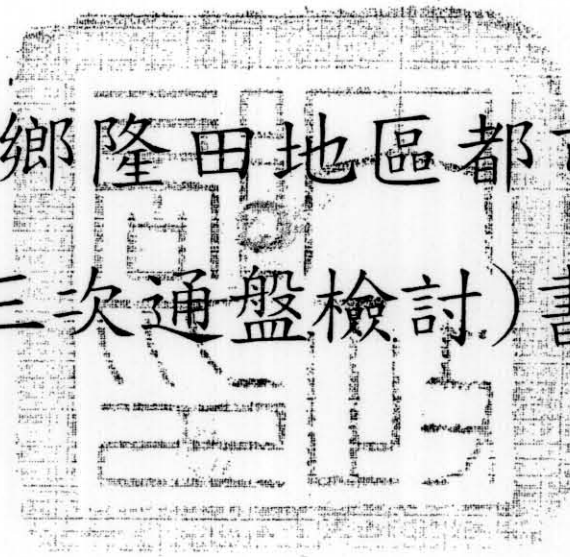 鄉隆田地區都市
三次通盤檢討)書